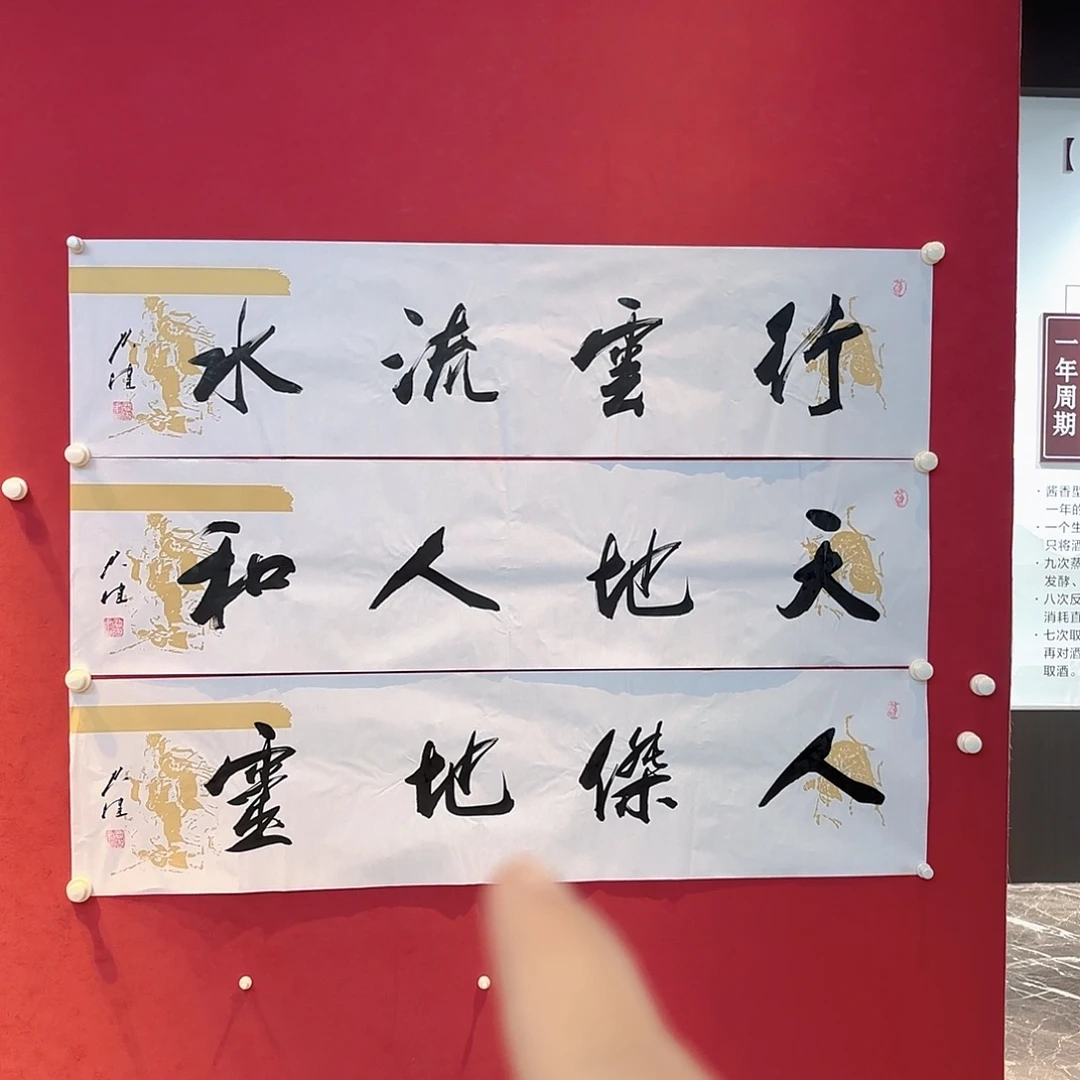 行雲流水
天地人和
人傑地靈
【
一年周期
· 酱香型
一年的
· 一个生
只将酒
· 九次蒸
发酵、
· 八次反
消耗直
· 七次取
再对酒
取酒。